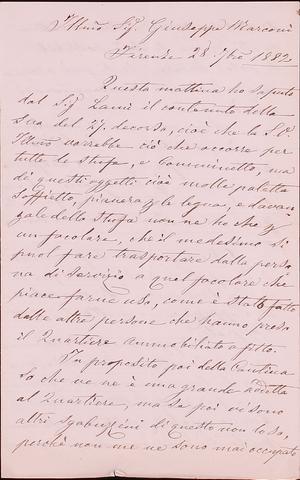 Illmo Sig. Giuseppe Marconi
Firenze 28 1882
Questa mattina ho saputo
dal Sig. Lami il contenuto della
sua del 27. decorso, cioè che la S.V.
Illma vorrebbe ciò che occorre per
tutte le stufe, e Camminetto, ma
di questi oggetti cioè molle paletta
soffietto, per le legna, e davan-
zale della stufa non ne ho che p
un focolare, che il medesimo si
puol fare trasportare dalla perso-
na di servizio a quel focolare che
piace farne uso, come è stato fatto
dalle altre persone che hanno preso
il Quartiere ammobiliato a fitto.
In proposito poi della Cantina
so che ve ne è una grande addetta
al Quartiere, ma se poi vi sono
altri sgabuzzini di questo non lo so,
perchè non me ne sono mai occupato